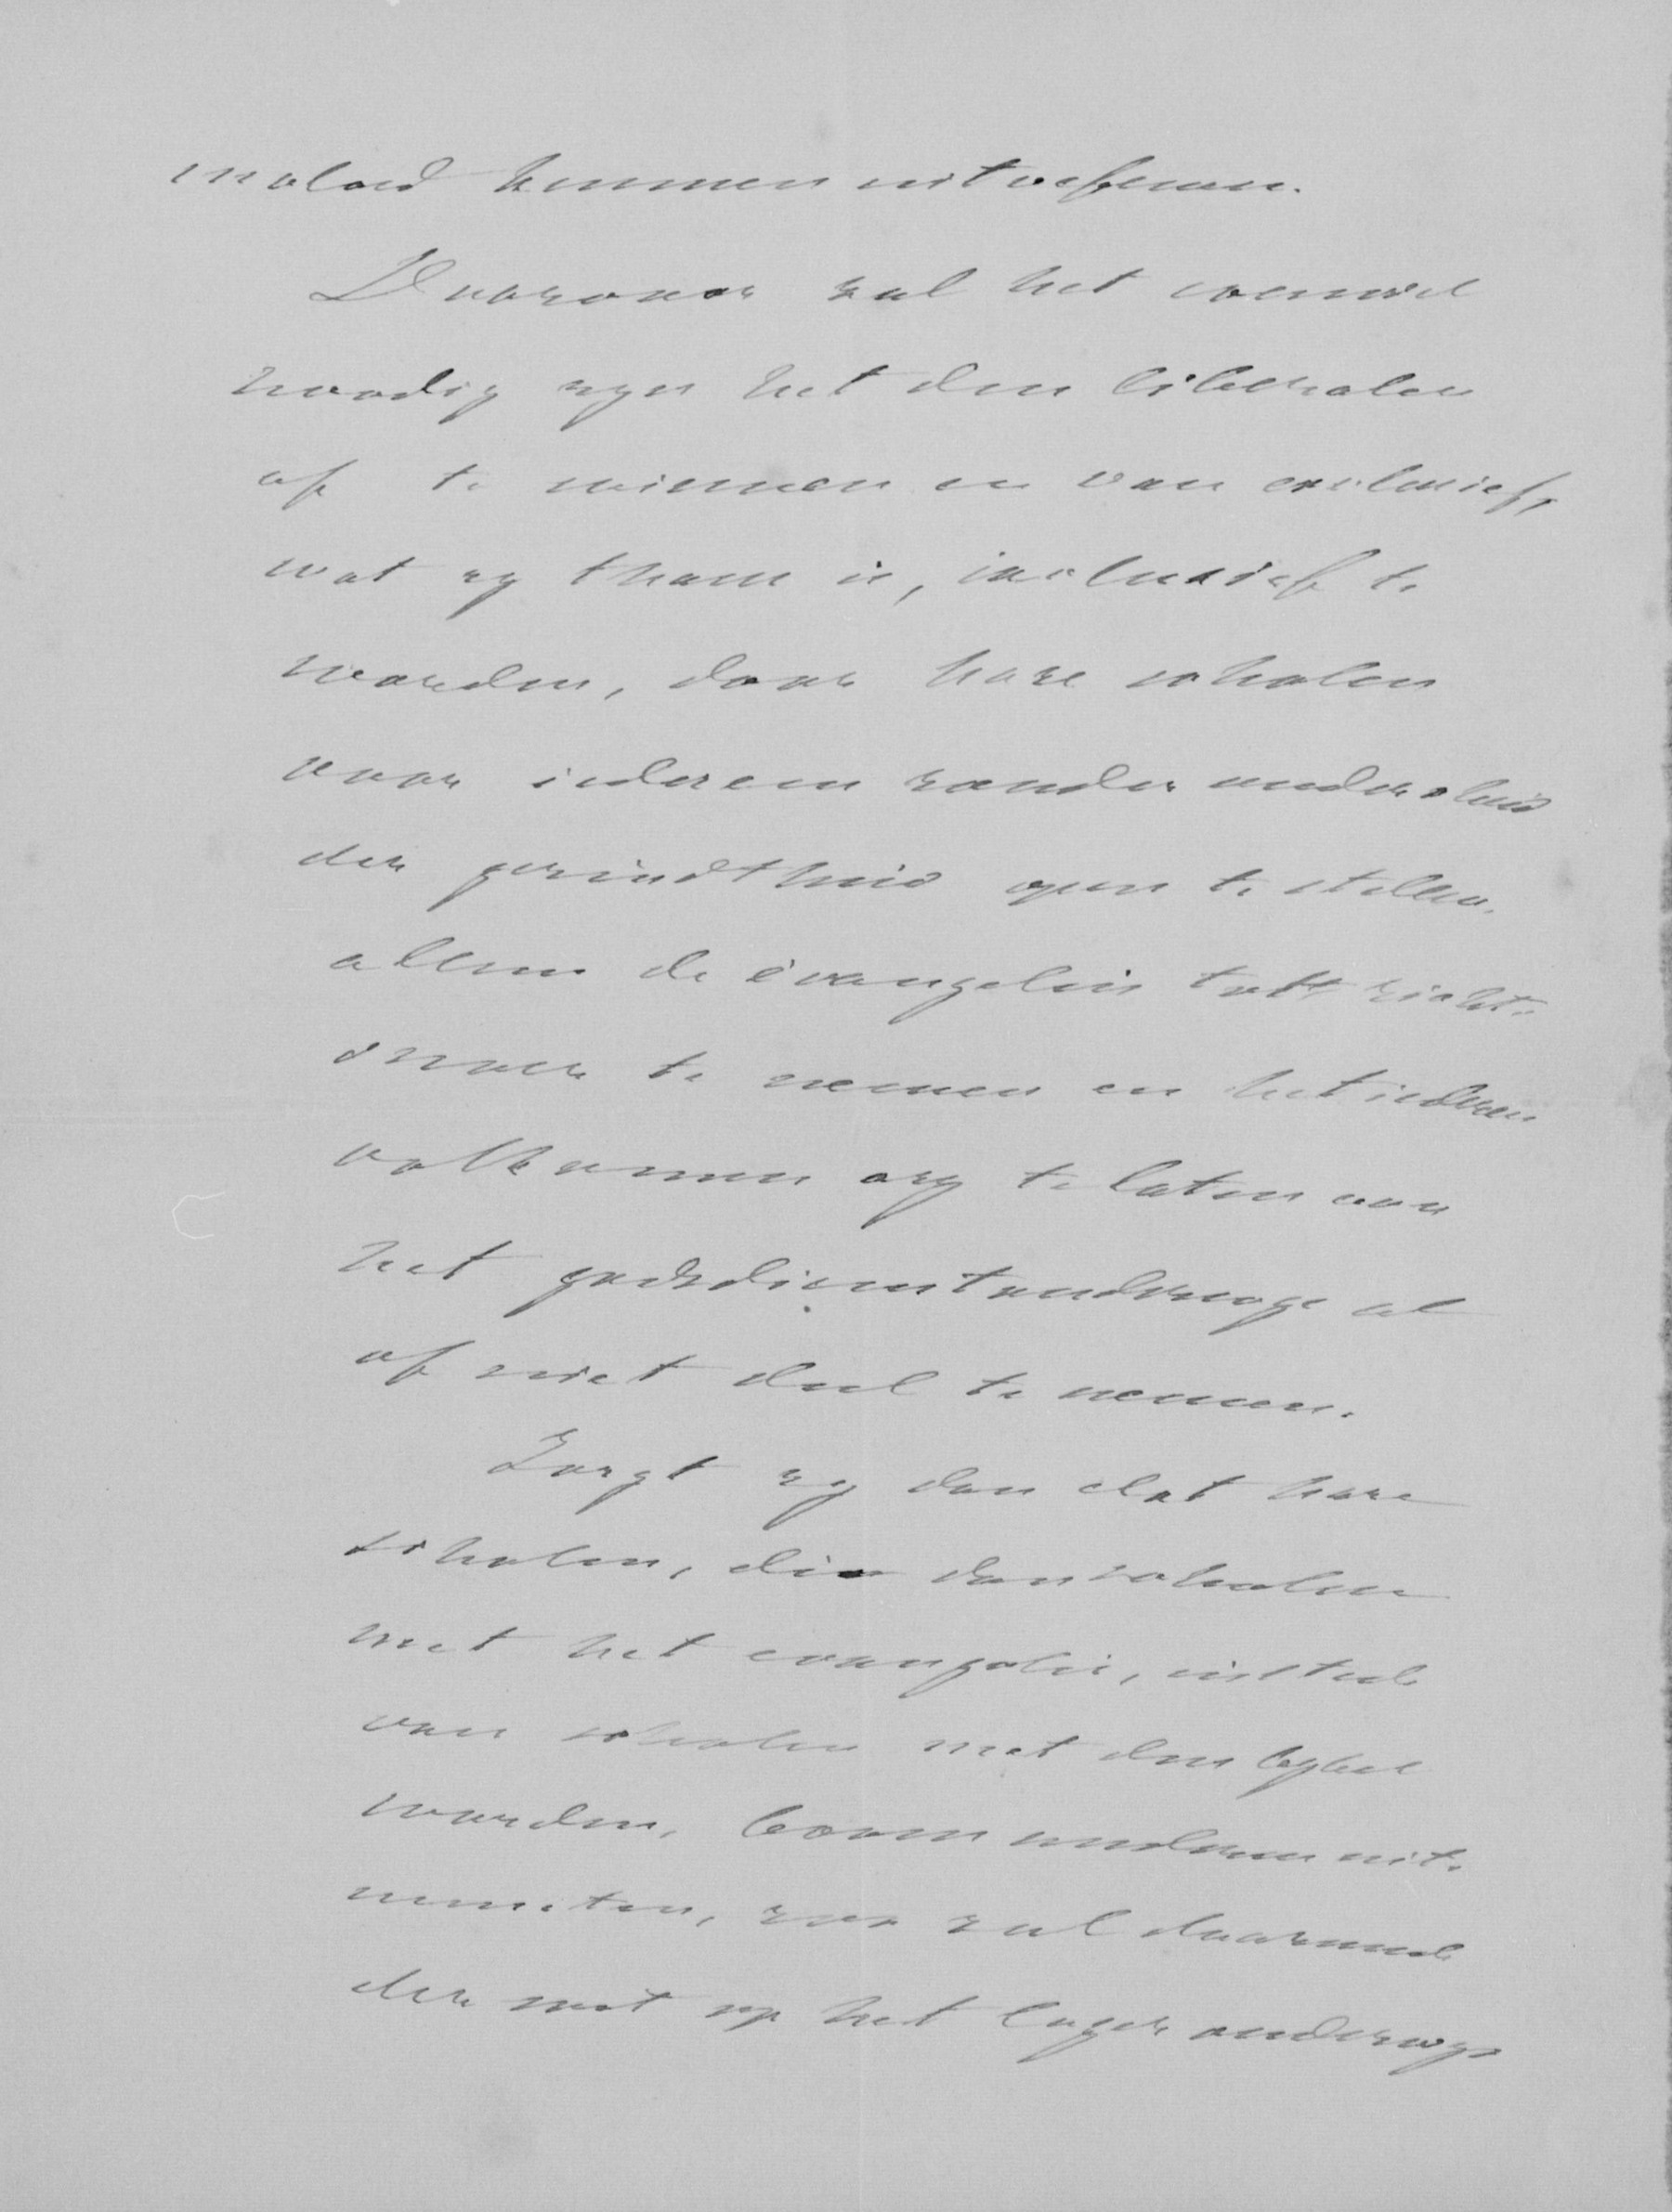 invloed kunnen uitoefenen.
Daarvoor zal het evenwel
noodig zyn het den liberalen
af te winnen en van exclusief,
wat zy thans is, inclusief te
worden, door hare scholen
voor iedereen zonder onderscheid
der gezindtheid open te stellen,
alleen de evangelie tot richt-
snoer te nemen en het iedereen
volkomen vry te laten aan
het godsdienstonderwys al
of niet deel te nemen.
Zorgt zy dan dat hare
scholen, die dan scholen
met het evangelie, instede
van scholen met den bybel
worden, boven anderen uit-
munten, zoo zal daarmede
der wet op het lager onderwys